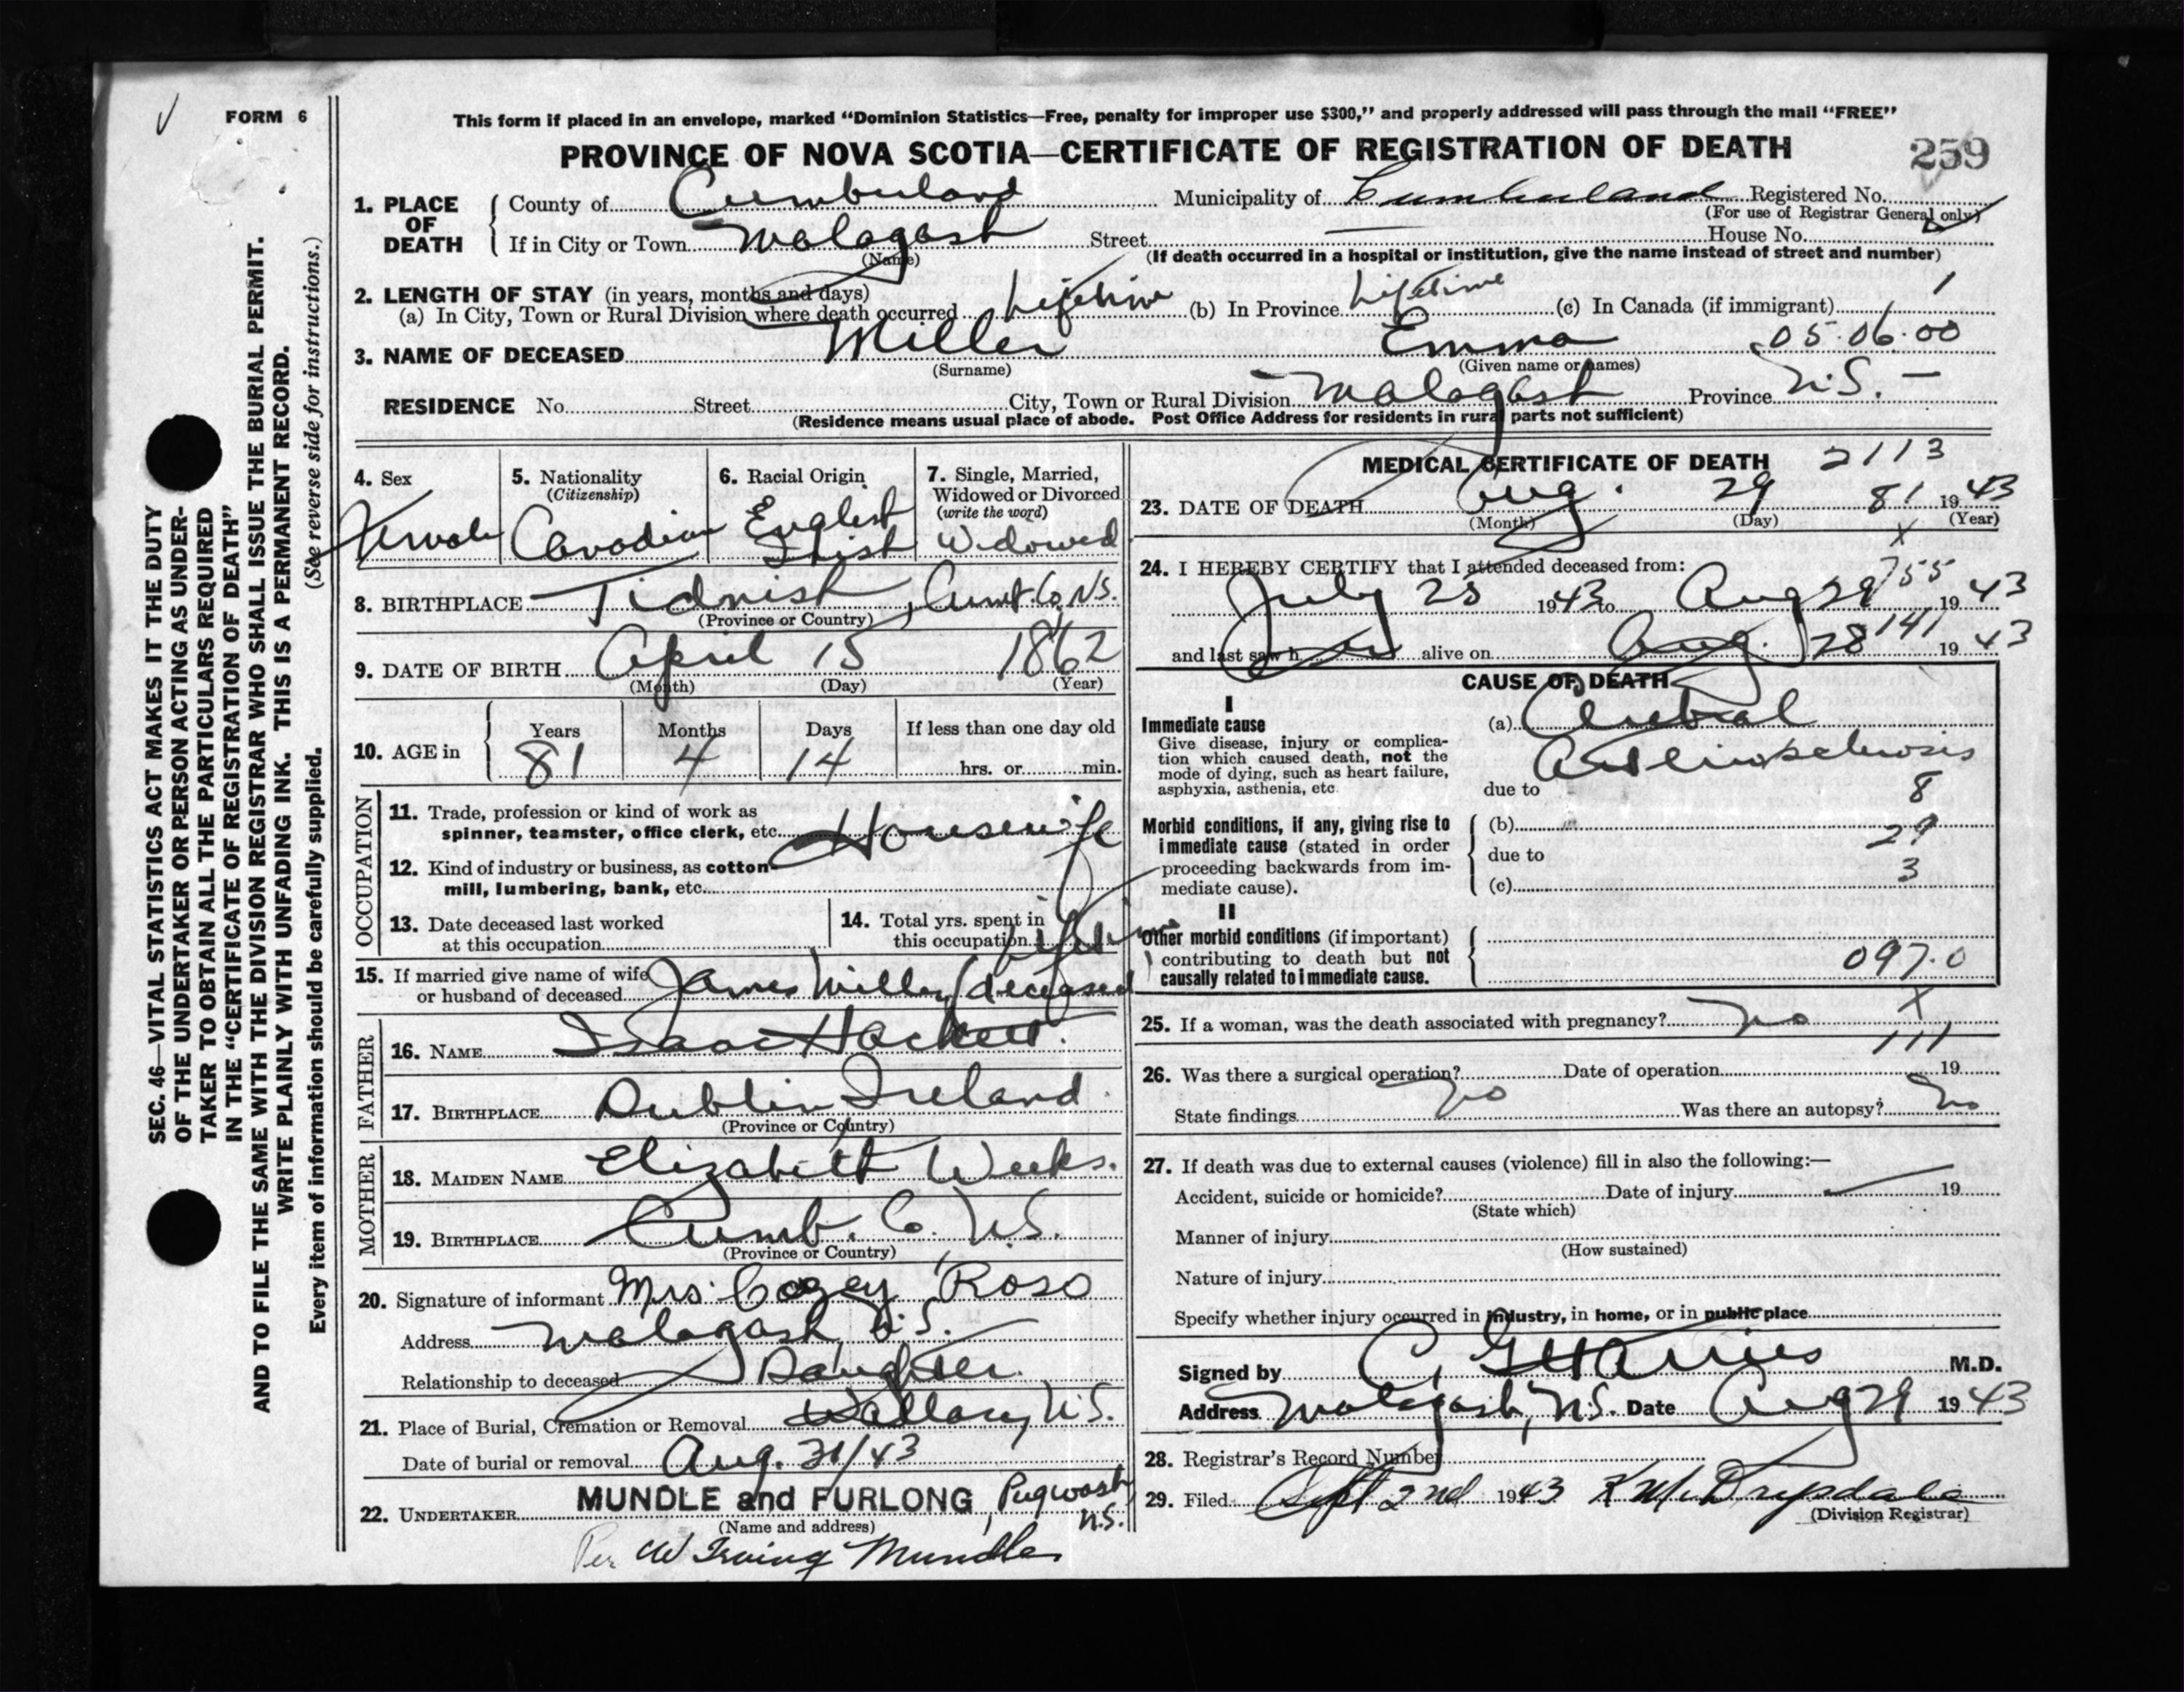 FORM 6
This form if placed in an envelope, marked “Dominion Statistics—Free, penalty for improper use $300,” and properly addressed will pass through the mail “FREE”
PROVINCE OF NOVA SCOTIA—CERTIFICATE OF REGISTRATION OF DEATH
259
1. PLACE OF DEATH { County of Cumberland Municipality of Cumberland Registered No.
(For use of Registrar General only)
If in City or Town Malagash Street — House No.
(Name)
(If death occurred in a hospital or institution, give the name instead of street and number)
2. LENGTH OF STAY (in years, months and days)
(a) In City, Town or Rural Division where death occurred Lifetime (b) In Province Lifetime (c) In Canada (if immigrant) 1
3. NAME OF DECEASED Miller Emma 05·06·00
(Surname) (Given name or names)
RESIDENCE No. Street City, Town or Rural Division Malagash Province N.S. —
(Residence means usual place of abode. Post Office Address for residents in rural parts not sufficient)
4. Sex
Female
5. Nationality
(Citizenship)
Canadian
6. Racial Origin
English
Irish
7. Single, Married,
Widowed or Divorced
(write the word)
Widowed
8. BIRTHPLACE Tidnish, Cumb. Co. N.S.
(Province or Country)
9. DATE OF BIRTH April 15 1862
(Month) (Day) (Year)
10. AGE in { Years Months Days If less than one day old
81 4 14 hrs. or min.
OCCUPATION
11. Trade, profession or kind of work as
spinner, teamster, office clerk, etc. Housewife
12. Kind of industry or business, as cotton
mill, lumbering, bank, etc.
13. Date deceased last worked
at this occupation
14. Total yrs. spent in
this occupation Lifetime
15. If married give name of wife
or husband of deceased James Miller (deceased
FATHER
16. NAME Isaac Hackett.
17. BIRTHPLACE Dublin Ireland.
(Province or Country)
MOTHER
18. MAIDEN NAME Elizabeth Weeks.
19. BIRTHPLACE Cumb. Co. N.S.
(Province or Country)
20. Signature of informant Mrs. Cogey Roso
Address Malagash N.S.
Relationship to deceased Daughter.
21. Place of Burial, Cremation or Removal Wallace, N.S.
Date of burial or removal Aug. 31/43
22. UNDERTAKER MUNDLE and FURLONG, Pugwash N.S.
(Name and address)
Per W Irving Mundle
MEDICAL CERTIFICATE OF DEATH 2113
23. DATE OF DEATH Aug. 29 81 1943
(Month) (Day) (Year)
x
24. I HEREBY CERTIFY that I attended deceased from:
July 25 1943 to Aug 29 755 1943
and last saw h er alive on Aug. 28 141 1943
CAUSE OF DEATH
I
Immediate cause
Give disease, injury or complica-
tion which caused death, not the
mode of dying, such as heart failure,
asphyxia, asthenia, etc.
(a) Cerebral
Arteriosclerosis
due to 8
Morbid conditions, if any, giving rise to
immediate cause (stated in order
proceeding backwards from im-
mediate cause).
(b) 29
due to
(c) 3
II
Other morbid conditions (if important)
contributing to death but not
causally related to immediate cause.
097.0
25. If a woman, was the death associated with pregnancy? No x
111
26. Was there a surgical operation? No Date of operation 19
State findings Was there an autopsy? No
27. If death was due to external causes (violence) fill in also the following:—
Accident, suicide or homicide? Date of injury — 19
(State which)
Manner of injury
(How sustained)
Nature of injury
Specify whether injury occurred in industry, in home, or in public place
Signed by C. G. Harries M.D.
Address Malagash, N.S. Date Aug 29 1943
28. Registrar's Record Number
29. Filed Sept 2nd 1943 K. M. Drysdale
(Division Registrar)
SEC. 46—VITAL STATISTICS ACT MAKES IT THE DUTY
OF THE UNDERTAKER OR PERSON ACTING AS UNDER-
TAKER TO OBTAIN ALL THE PARTICULARS REQUIRED
IN THE “CERTIFICATE OF REGISTRATION OF DEATH”
AND TO FILE THE SAME WITH THE DIVISION REGISTRAR WHO SHALL ISSUE THE BURIAL PERMIT.
WRITE PLAINLY WITH UNFADING INK. THIS IS A PERMANENT RECORD.
Every item of information should be carefully supplied. (See reverse side for instructions.)